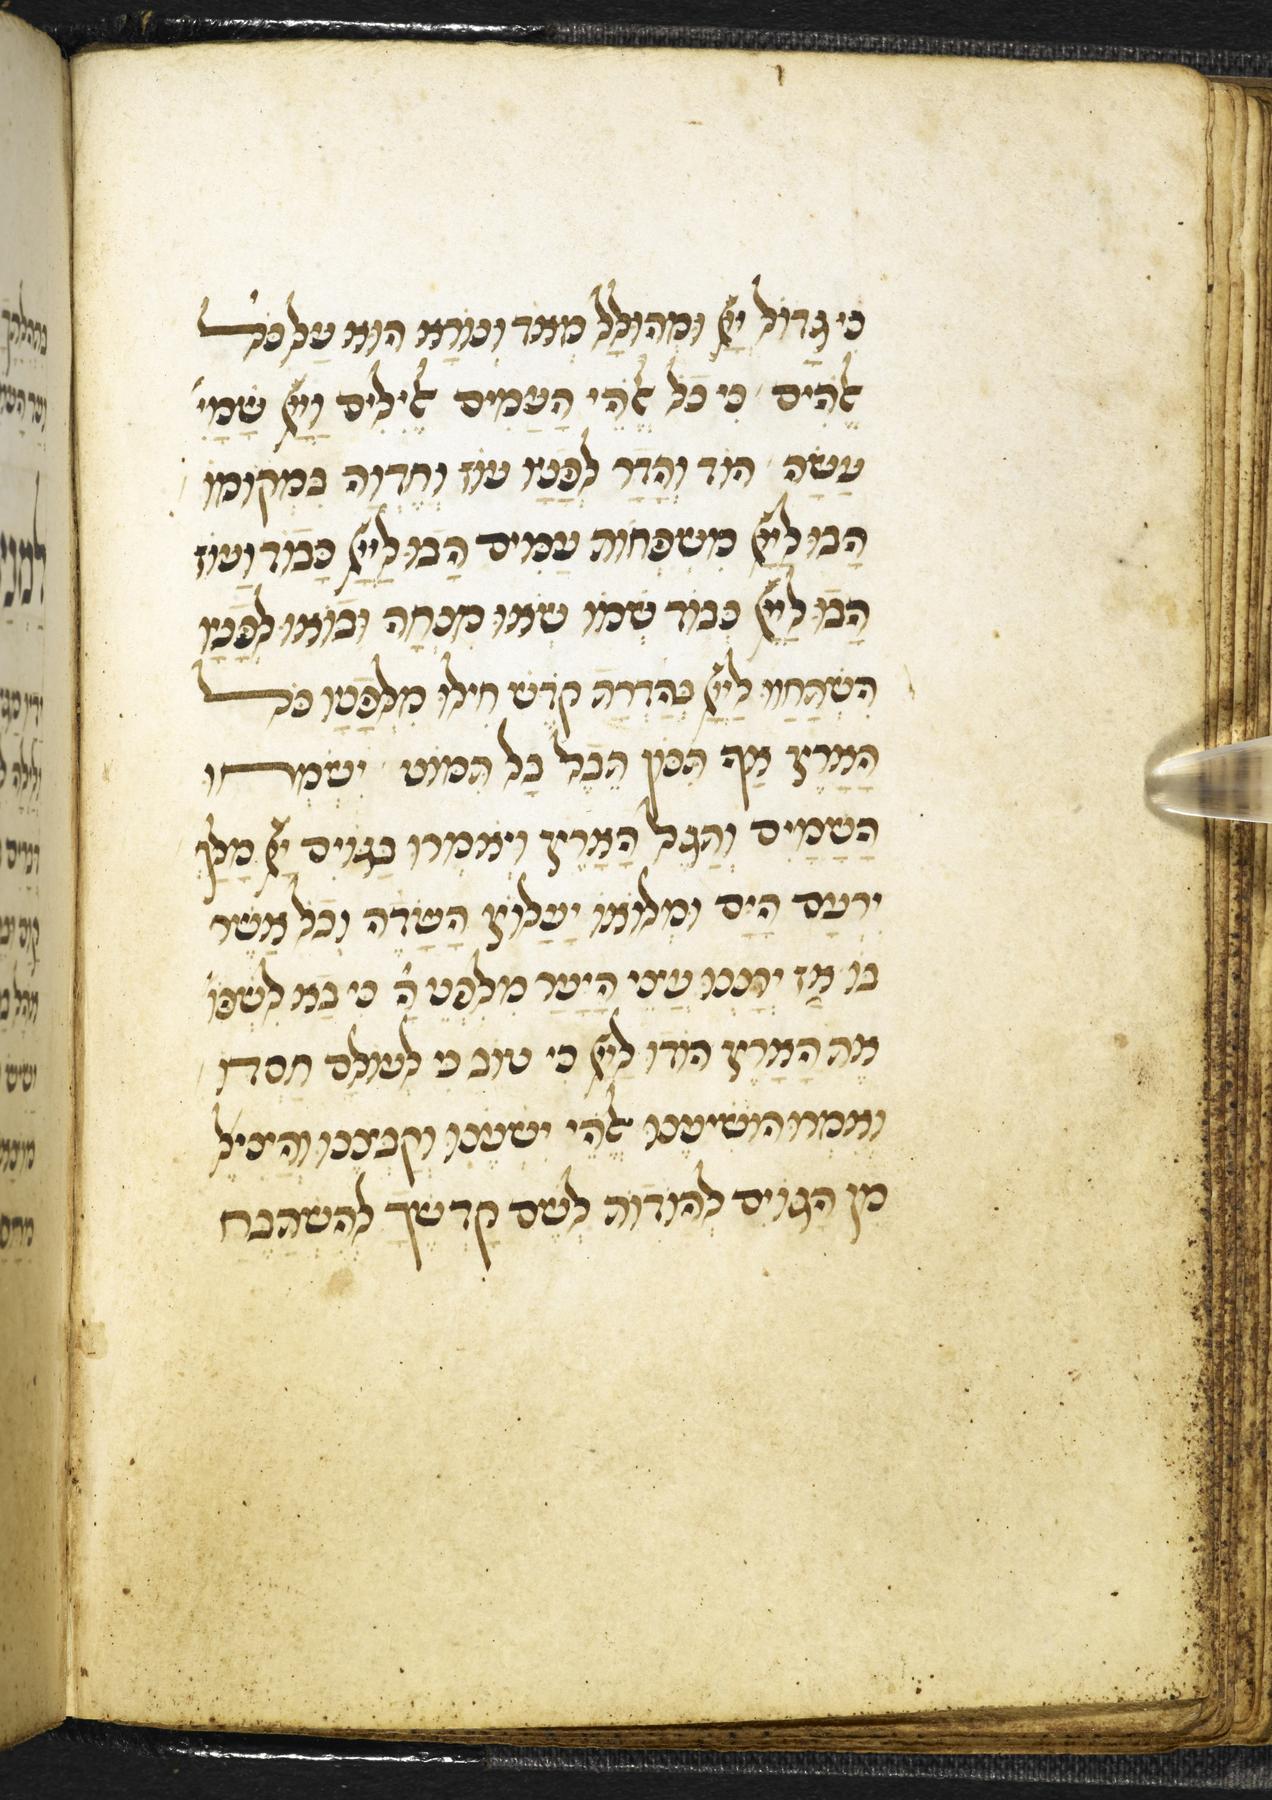 כִּי גָדוֹל יְיָ וּמְהוּלָל מְאֹד וְנוֹרָא הוּא עַל כֹּל
אֱלֹהִים כִּי כָּל אֱלֹהֵי הָעַמִּים אֱלִילִים וַיְיָ שָׁמַי׳
עָשָׂה הוֹד וְהָדָר לְפָנָיו עוֹז וְחֶדְוָה בִּמְקוֹמוֹ
הָבוּ לַיְיָ מִשְׁפְּחוֹת עַמִּים הָבוּ לַיְיָ כָּבוֹד וָעוֹז
הָבוּ לַיְיָ כְּבוֹד שְׁמוֹ שְׂאוּ מִנְחָה וּבוֹאוּ לְפָנָיו
הִשְׁתַּחֲווּ לַיְיָ בְּהַדְרַת קֹדֶשׁ חִילוּ מִלְּפָנָיו כֹּל
הָאָרֶץ אַף תִּכּוֹן תֵּבֵל בַּל תִּמּוֹט יִשְׂמְחוּ
הַשָּׁמַיִם וְתָגֵל הָאָרֶץ וְיֹאמְרוּ בַגּוֹיִם יְיָ מָלָךְ
יִרְעַם הַיָּם וּמְלוֹאוֹ יַעֲלוֹץ הַשָּׂדֶה וְכֹל אֲשֶׁר
בּוֹ אָז יְרַנְּנוּ עֲצֵי הַיָּעַר מִלִּפְנֵי יְיָ כִּי בָא לִשְׁפּוֹ׳
אֶת הָאָרֶץ הוֹדוּ לַיְיָ כִּי טוֹב כִּי לְעוֹלָם חַסְדּוֹ
וְאִמְרוּ הוֹשִׁיעֵנוּ אֱלֹהֵי יִשְׁעֵנוּ וְקַבְּצֵנוּ וְהַצִּילֵ׳
מִן הַגּוֹיִם לְהוֹדוֹת לְשֵׁם קָדְשֶׁךָ לְהִשְׁתַּבֵּחַ